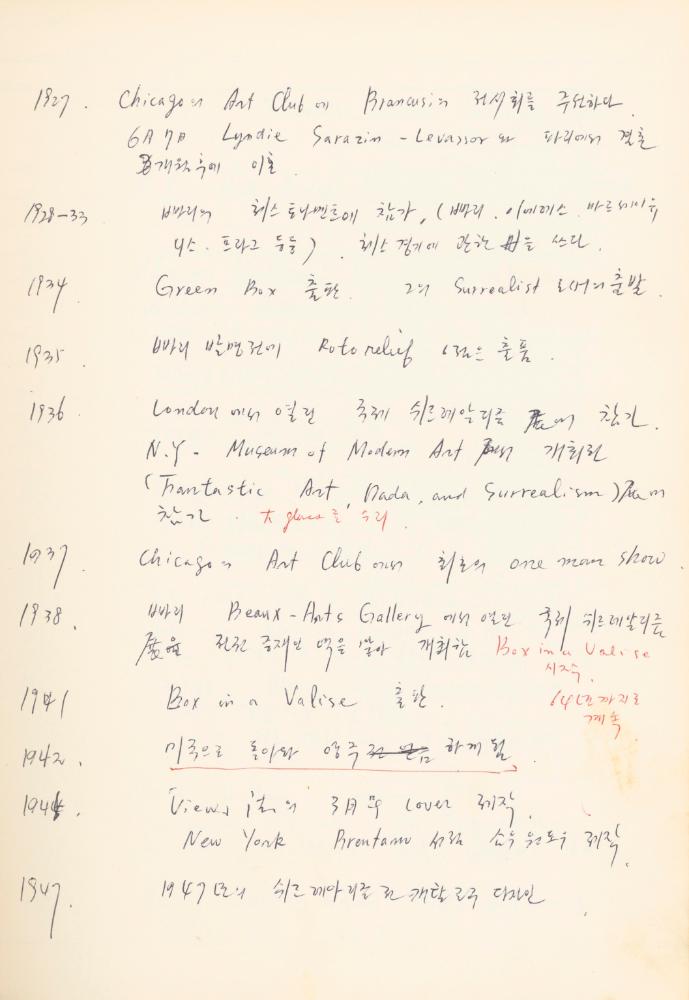 1927. Chicago의 Art Club에 Brancusi의 전시회를 주선하다
6月 7日 Lyndie Sarazin - Levassor와 파리에서 결혼
개월후에 이혼.
1928-33 빠리의 체스 토나멘트에 참가, (빠리. 마르세이유
니스. 프라그 등등). 체스 경기에 관한 을 쓰다.
1934 Green Box 출판. Surrealist 출발.
1935 빠리 발명전에 Rotorelief 출품.
1936 London에서 열린 국제 쉬르레알리즘 展에 참가.
N.Y. Museum of Modern Art 에서 개최된
(Fantastic Art, Dada, and Surrealism)展에
참가. 大glass를 수리
1937. Chicago의 Art Club에서 최초의 one man show.
1938. 빠리 Beaux-Arts Gallery에서 열린 국제 쉬르레알리즘
展을 중재인 역을 맡아 개최함 Box in a Valise
시작.
1941 Box in a Valise 출판. 64년까지로
계속
1942. 미국으로 돌아와 영주 하게 됨.
1944. View, 3月号 cover 제작.
New York Brentano 서점 쇼우 윈도우 제작.
1947. 1947년의 쉬르레아리즘전 캐탈로그 디자인.